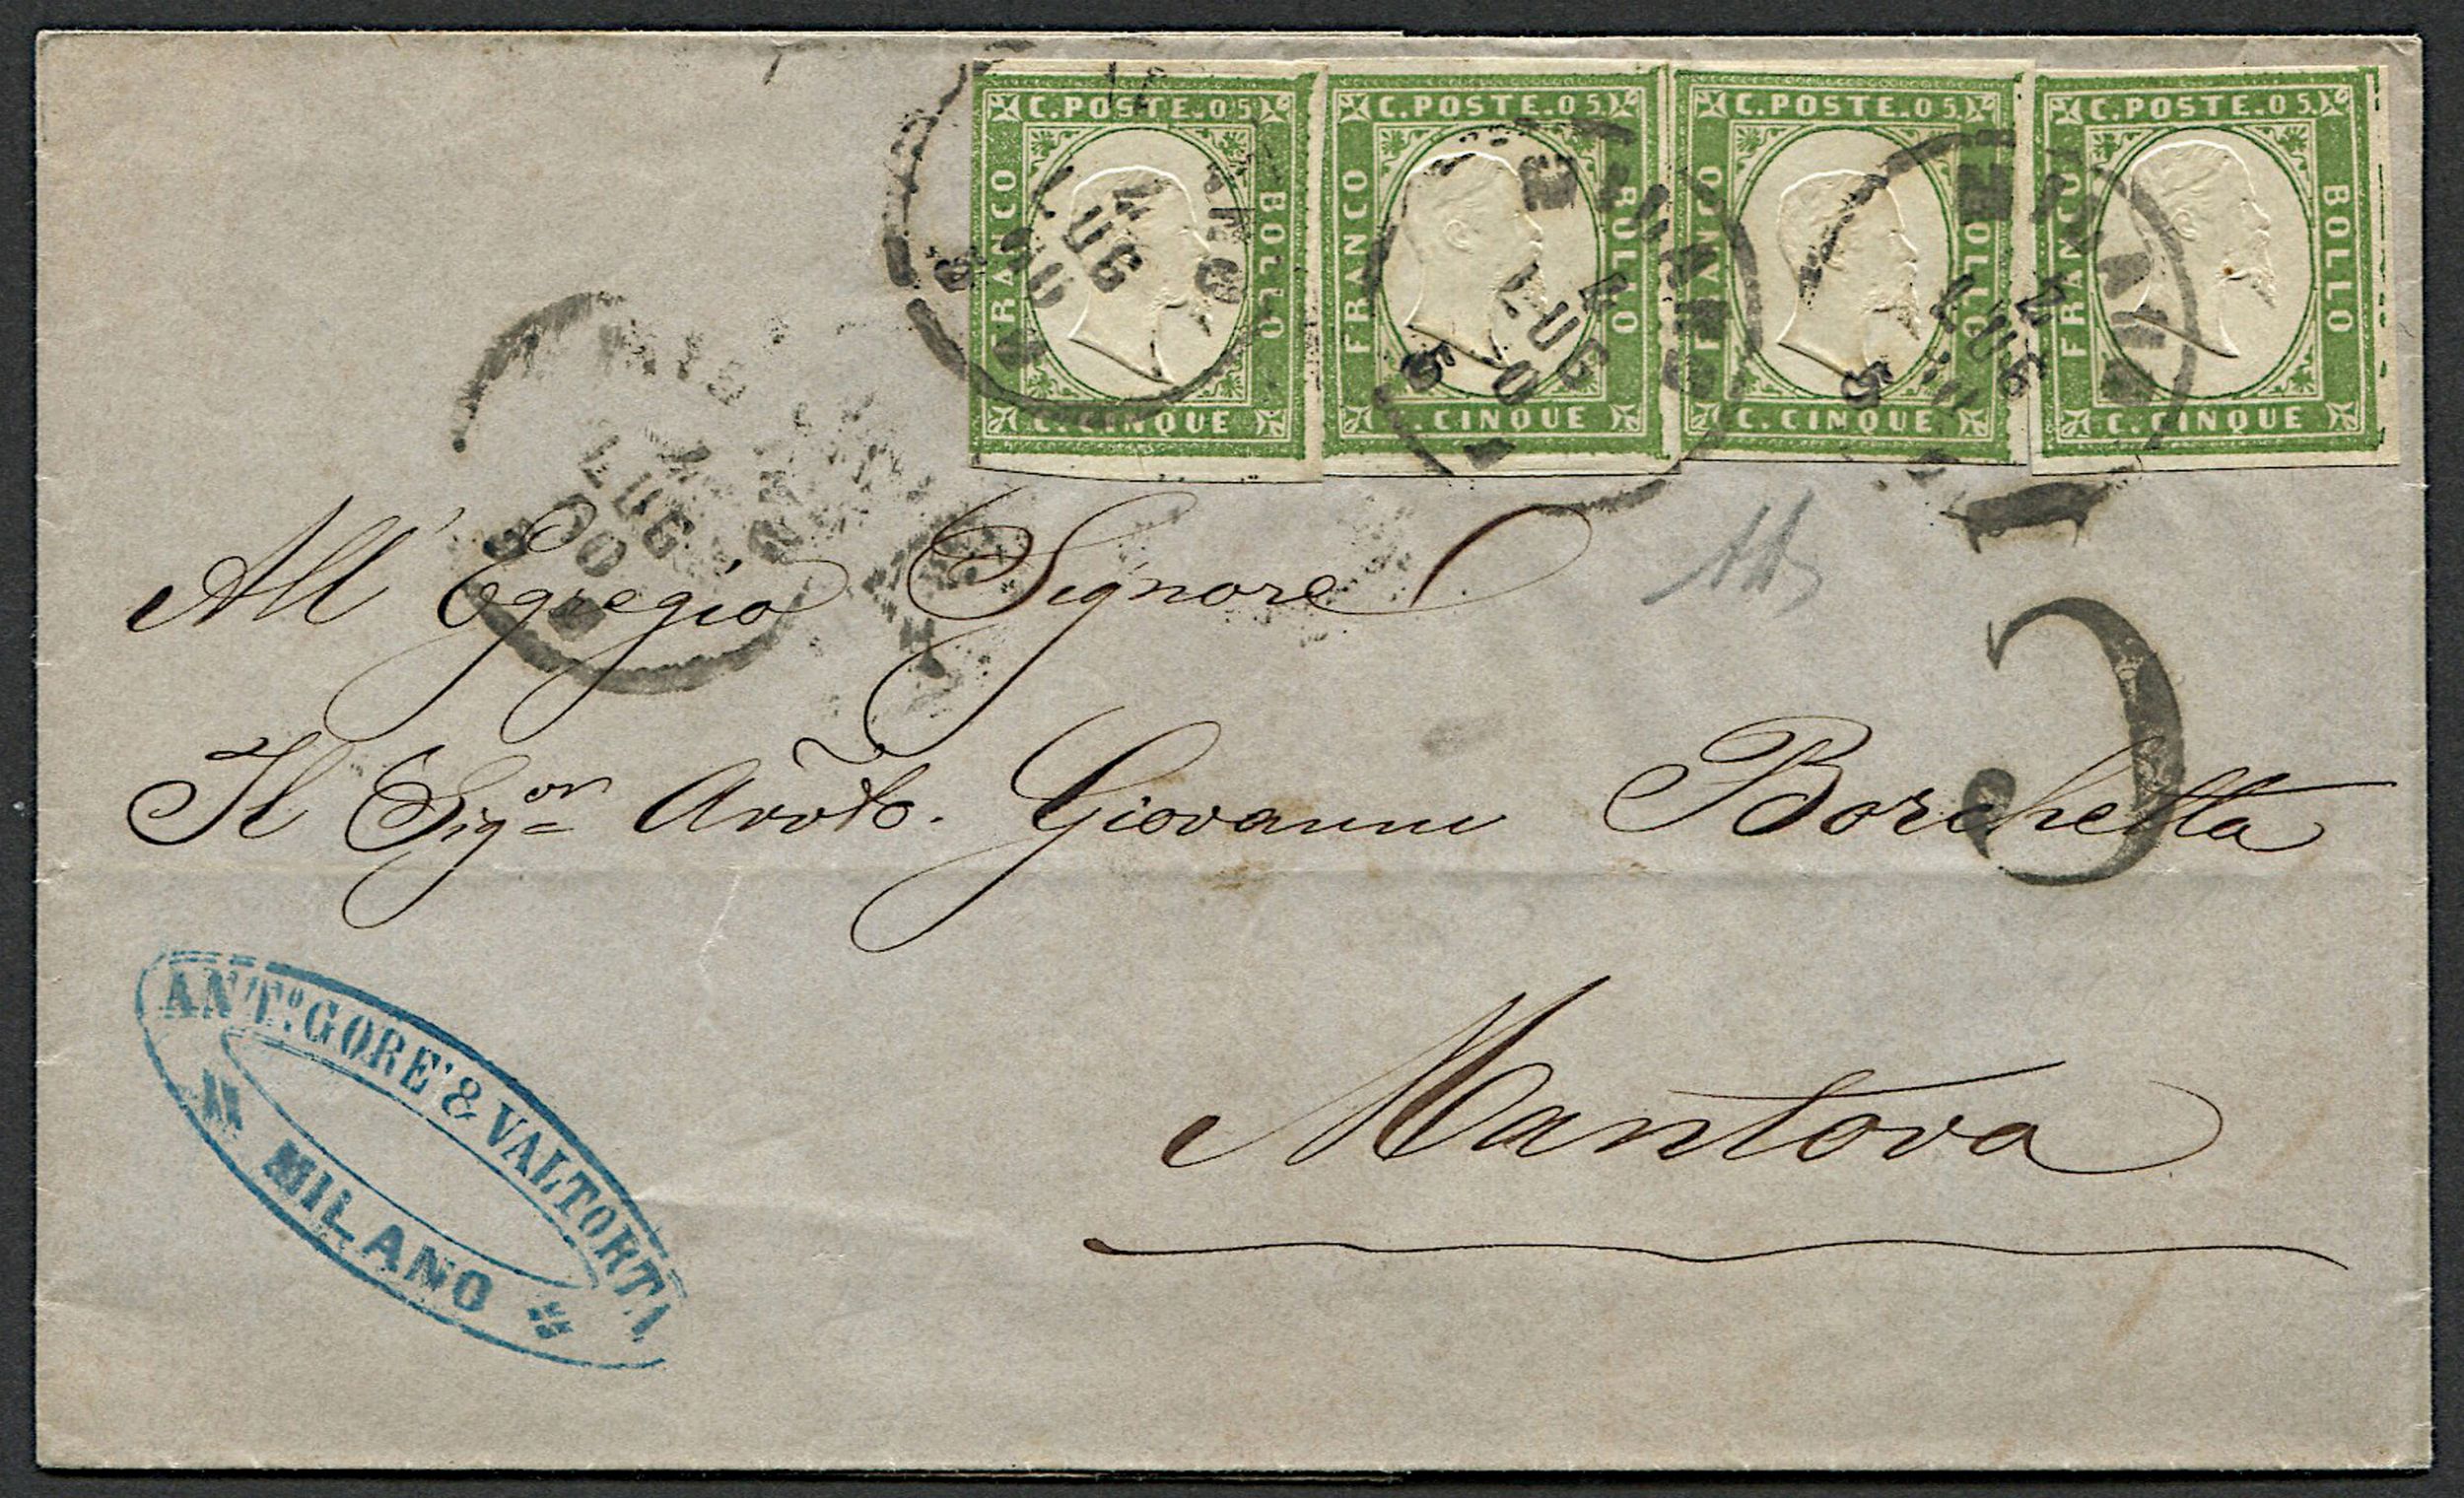 C. POSTE. 05
FRANCO
BOLLO
C. CINQUE
C. POSTE. 05
FRANCO
BOLLO
C. CINQUE
C. POSTE. 05
FRANCO
BOLLO
C. CINQUE
C. POSTE. 05
FRANCO
BOLLO
C. CINQUE
4
LUG
60
MILANO
4
LUG
60
4
LUG
4
LUG
60
All' Egregio Signore
Il Sigor Avvto. Giovanni Borchetta
Mantova
ANTº. GORE' & VALTORTA
MILANO